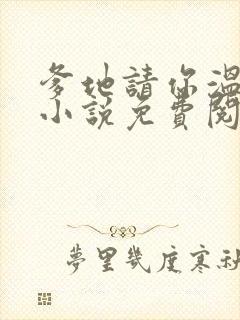 爹地請你溫
小說免費閱
夢里幾度寒秋